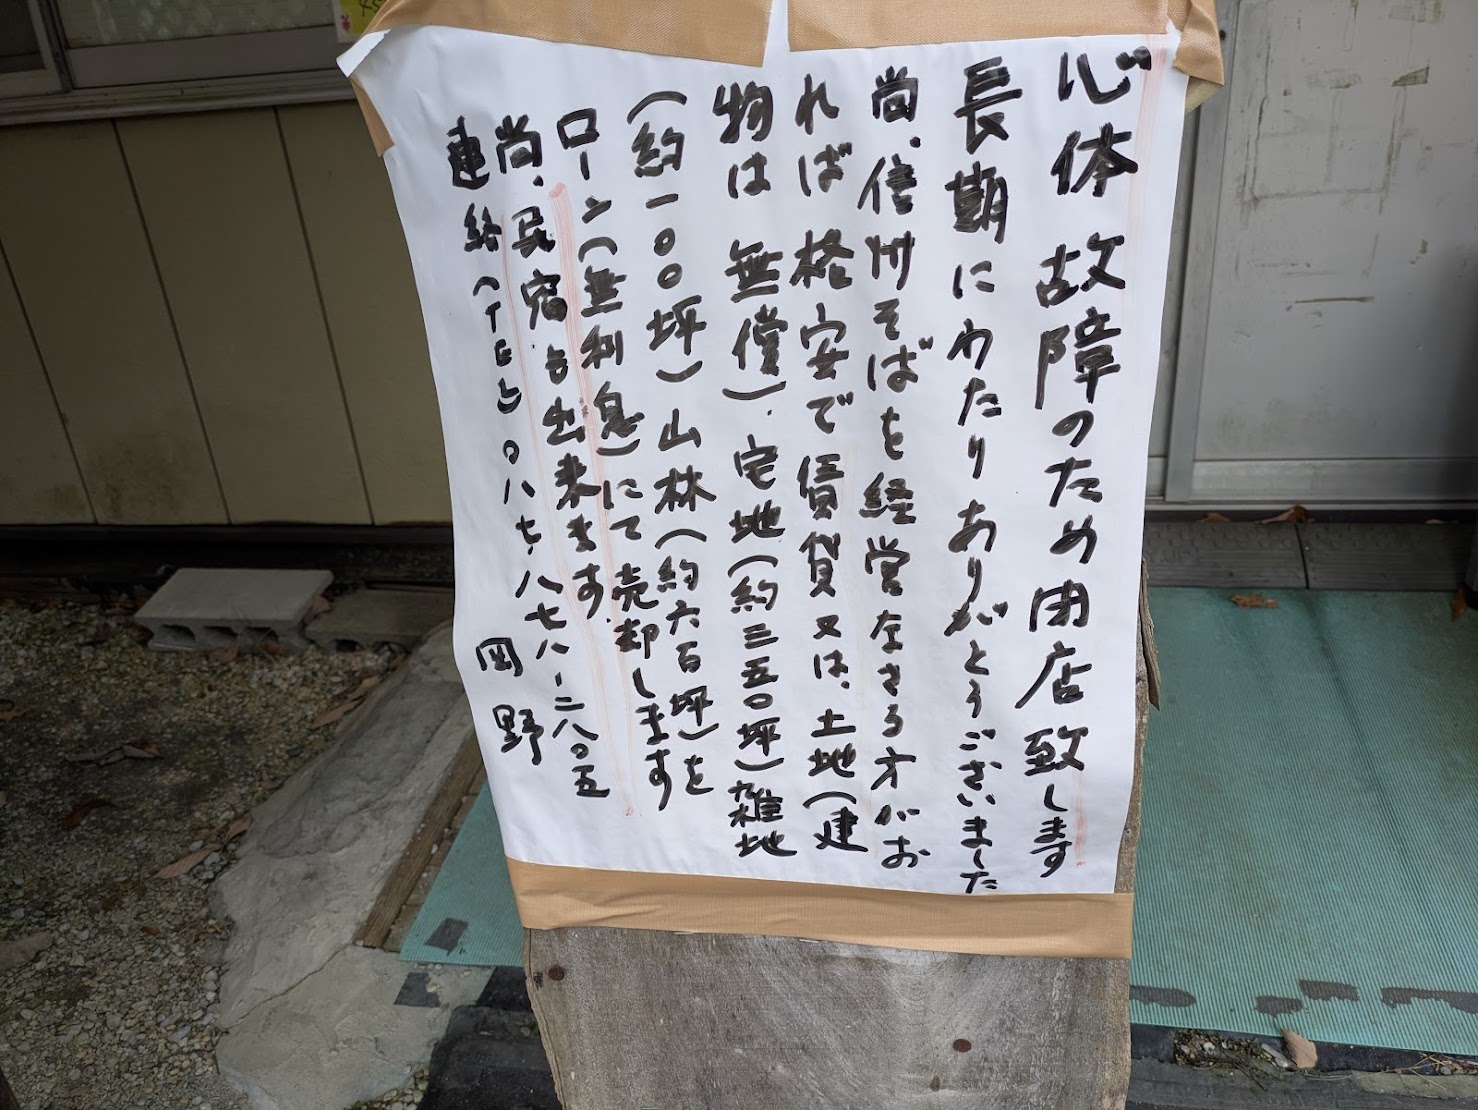 心体故障のため閉店致します
長期にわたりありがとうございました
尚、信州そばを経営なさる方がお
れば格安で賃貸又は、土地(建
物は無償)、宅地(約三五〇坪)雑地
(約一〇〇坪)山林(約六百坪)を
ローン(無利息)にて売却します
尚、民宿も出来ます。
連絡へTEL〇八七、八七八-二八〇五
岡野